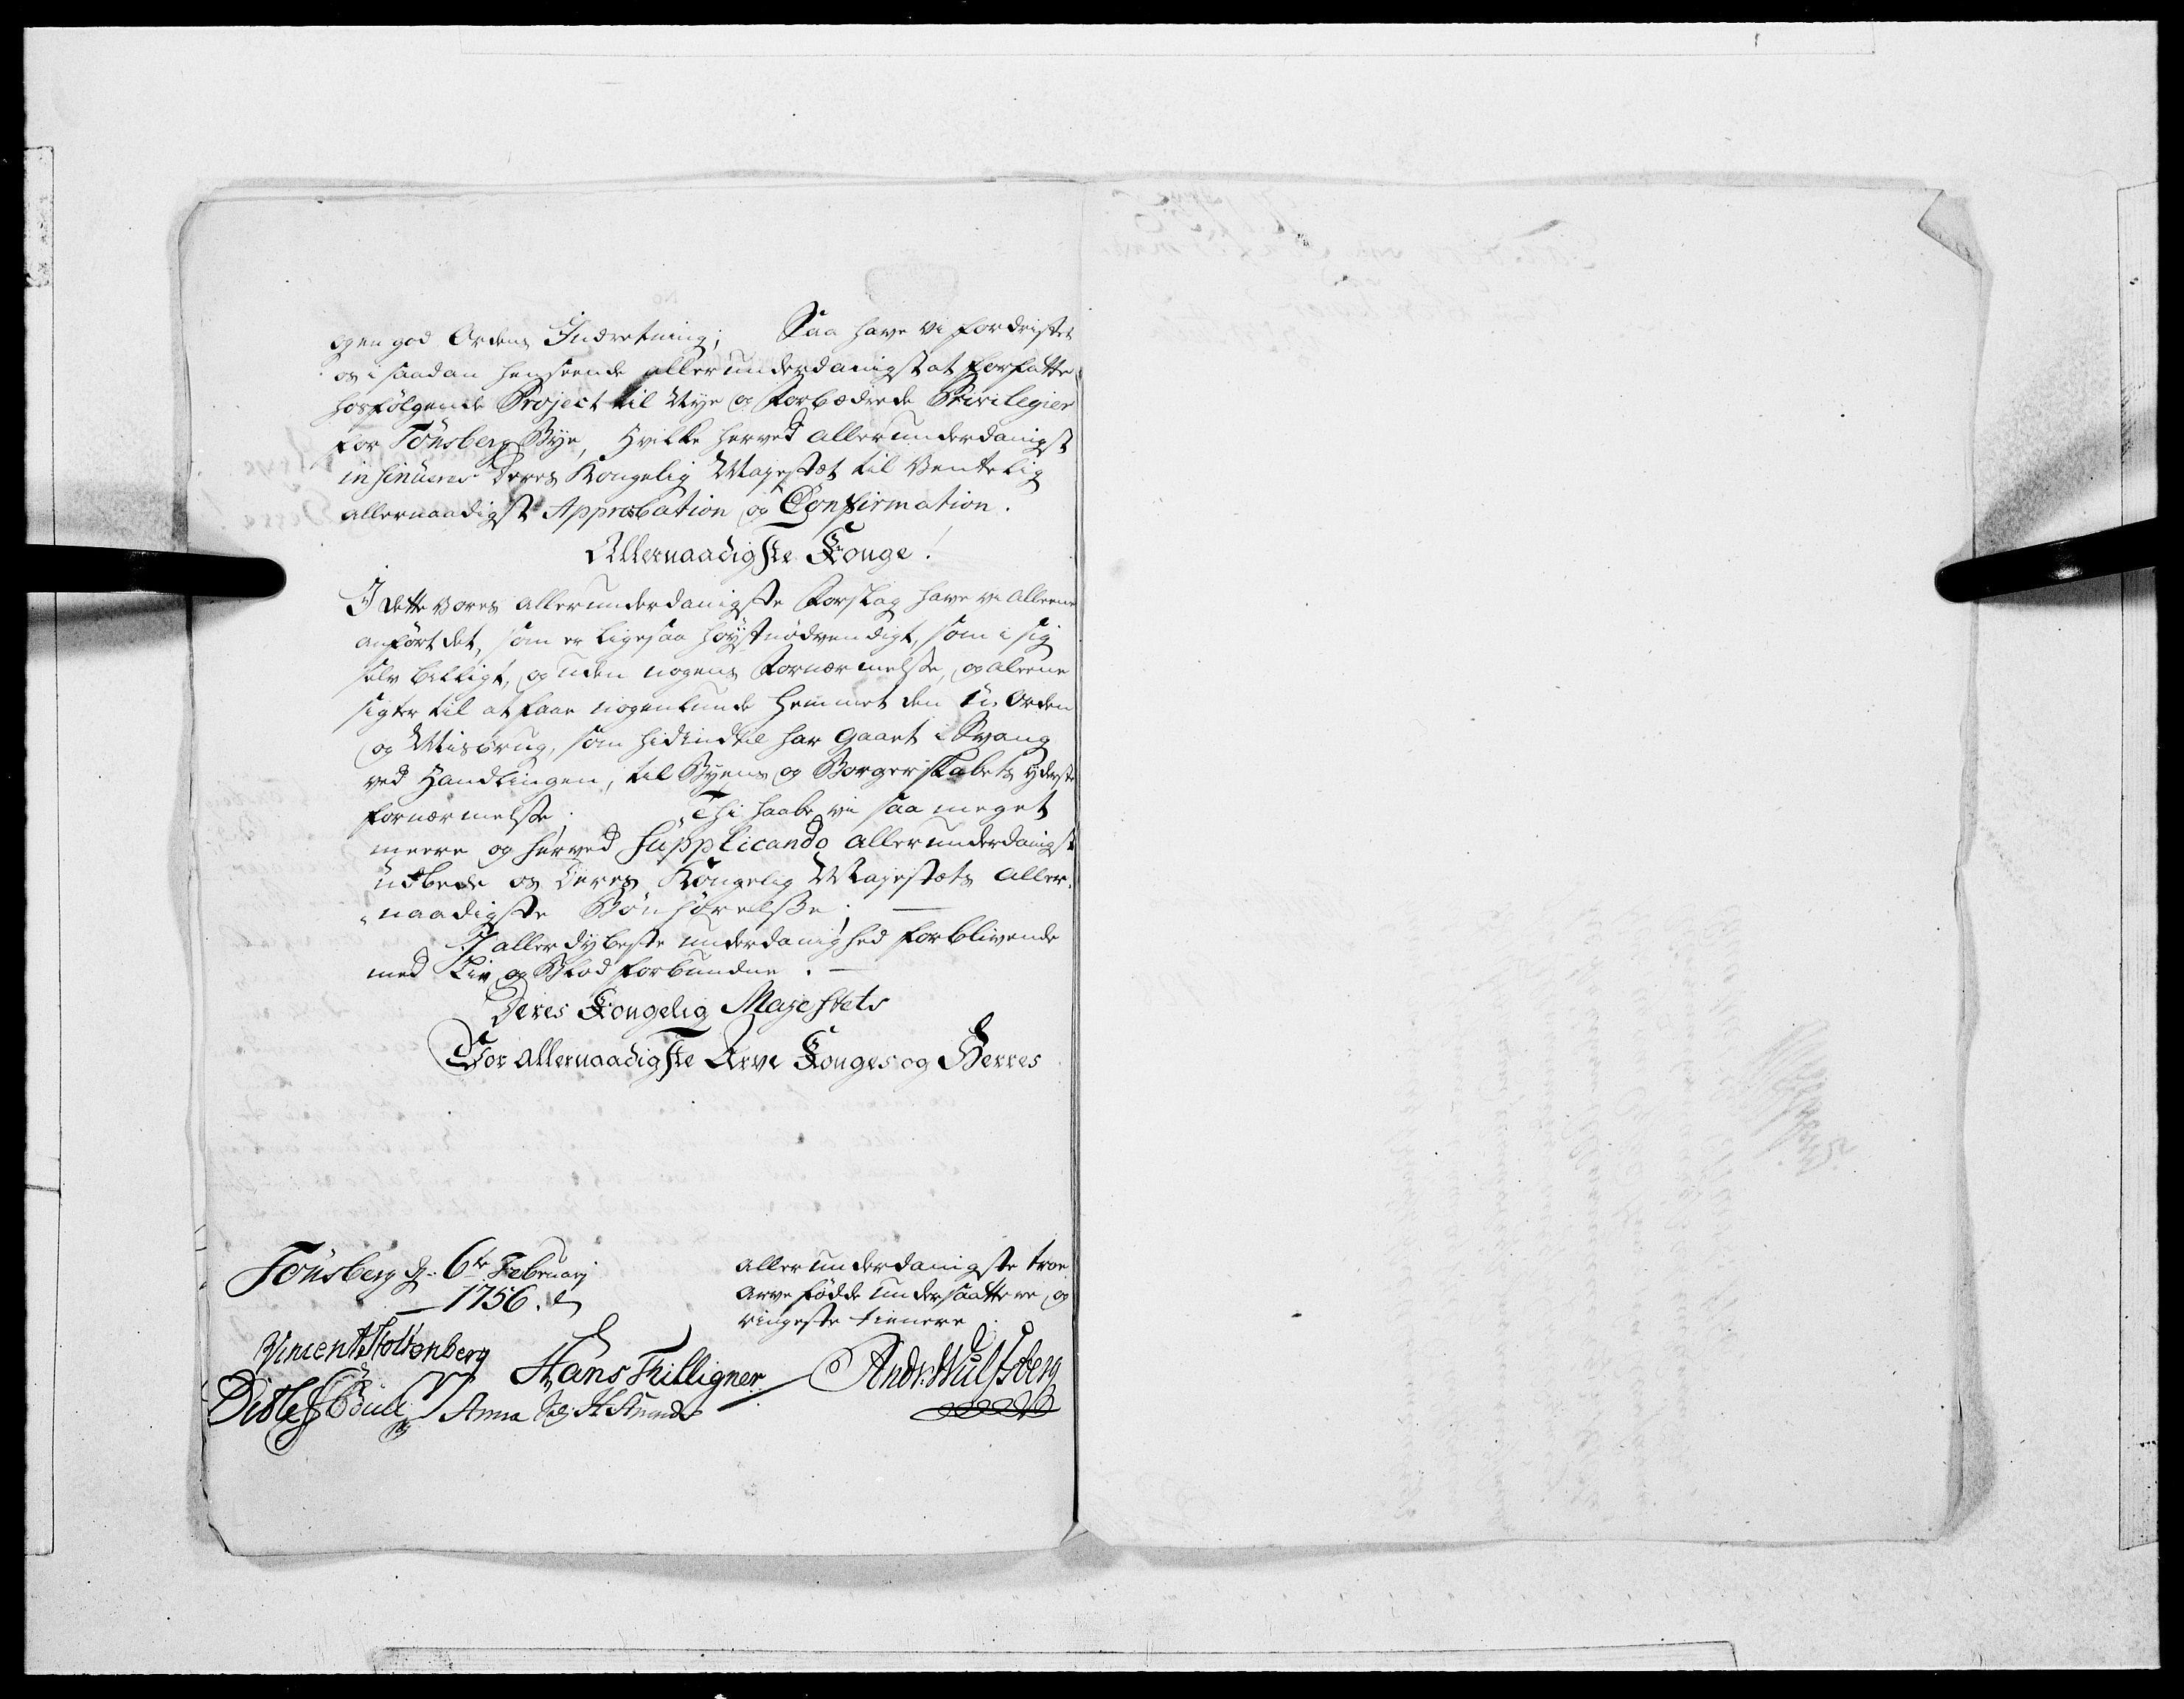 og en god Ordens Indretning; Saa have vi fordristet
os i saadan henseende allerunderdanigst at forfatte
hosfølgende Project til Nye og Forbædrede Privilegier
for Tønsberg Bye, Hvilke herved allerunderdanigst
insinueres Deres Kongelig Mayestæt til Ventelig
allernaadigst Approbation og Confirmation.
Allernaadigste Konge!
I dette vores allerunderdanigste Forslag have vi alleene
anført det, som er ligesaa høystnødvendigt, som i sig
selv billigt, og uden nogens Fornærmelse, og aleene
sigter til at faae nogenlunde hemmet den u-orden
og Misbrug, som hidindtil har gaaet i Svang
ved Handlingen, til Byens og Borgerskabets yderste
fornærmelse; Thi haabe vi saa meget
meere og herved supplicando allerunderdanigst
udbede os Deres Kongelig Mayestæts aller-
naadigste Bønhørelse;
I aller dybeste underdanighed forblivende
med Liv og Blod forbundne.
Deres Kongelig Majestets
Vor allernaadigste Arve Konges og Herres
Tönsberg d. 6te Februarj
1756.
allerunderdanigste troe
arve fødde undersaattere og
ringeste tienere
Vincent Stoltenberg
Hans Thilligner
Andr: Wulfsberg
Ditlef Buul
Anna